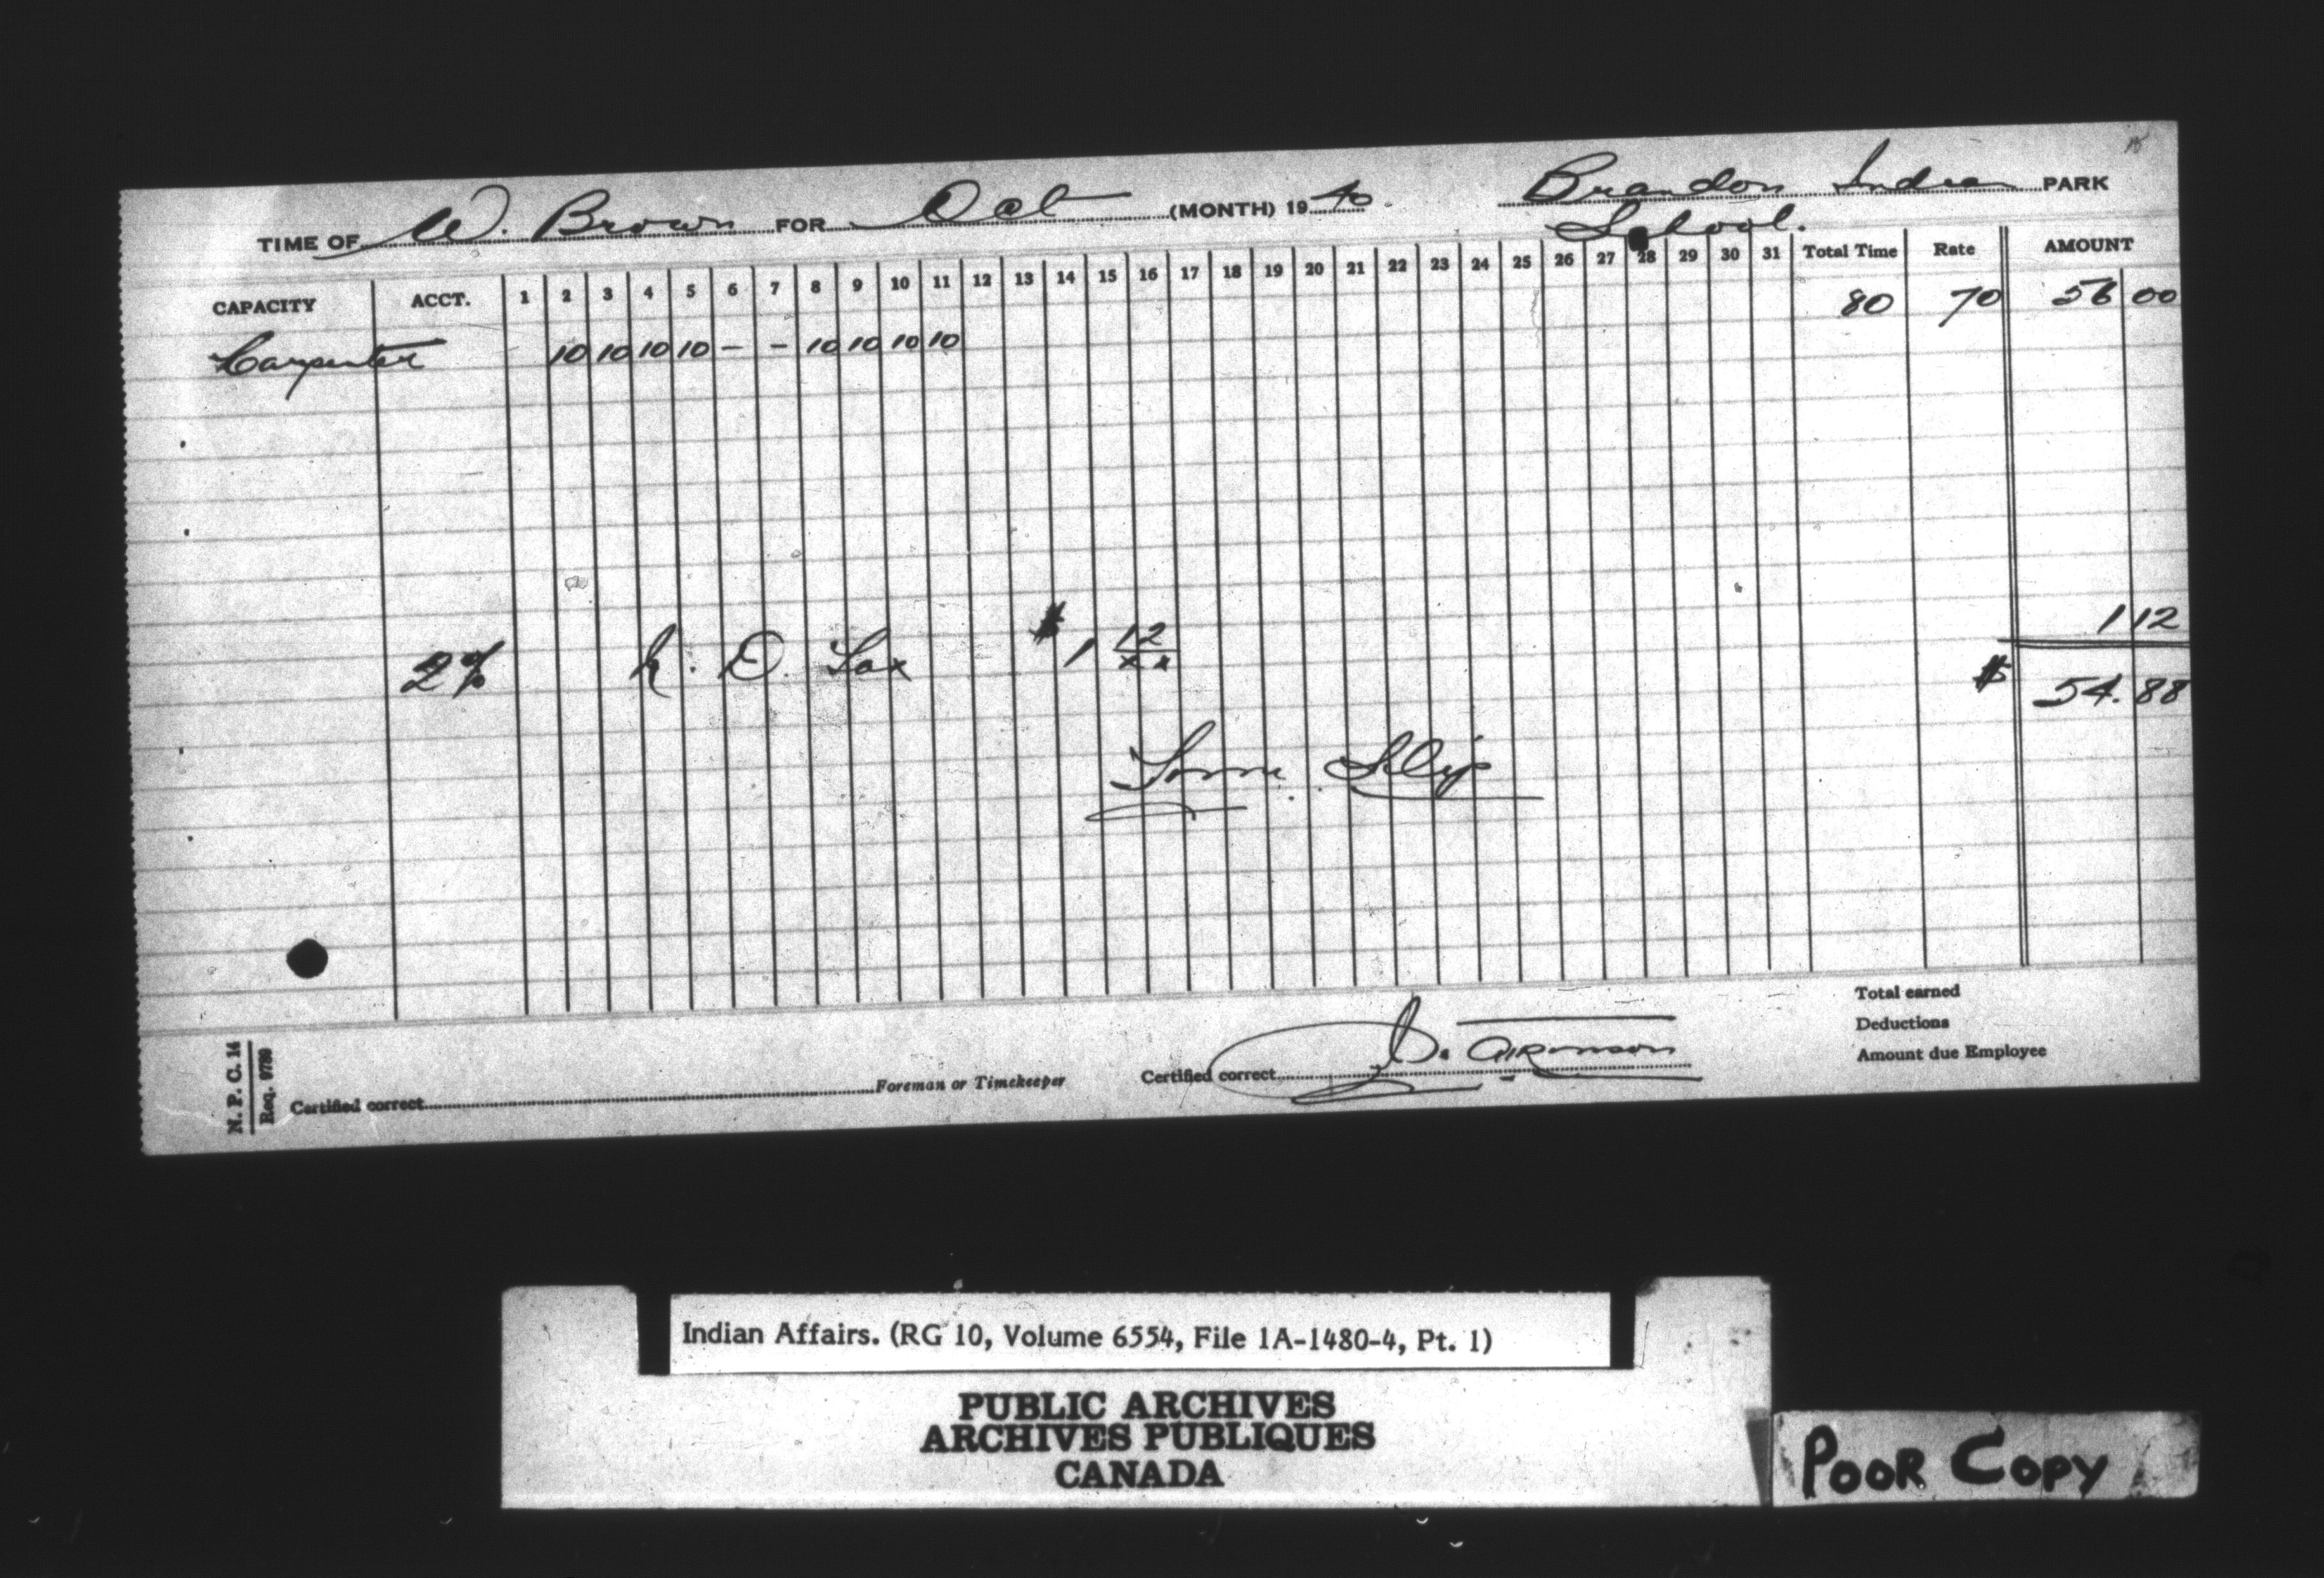 TIME OF W. Brown FOR Oct (MONTH) 19 40 Brandon Indian PARK
School.
CAPACITY ACCT. 1 2 3 4 5 6 7 8 9 10 11 12 13 14 15 16 17 18 19 20 21 22 23 24 25 26 27 28 29 30 31 Total Time Rate AMOUNT
80 70 56 00
Carpenter 10 10 10 10 - - 10 10 10 10
1 12
2% N. D. Tax $ 1 12/xx
$ 54.88
Slip
Total earned
Deductions
Amount due Employee
N. P. C. 14
Req. 9780
Certified correct Foreman or Timekeeper Certified correct
Indian Affairs. (RG 10, Volume 6554, File 1A-1480-4, Pt. 1)
PUBLIC ARCHIVES
ARCHIVES PUBLIQUES
CANADA
POOR COPY